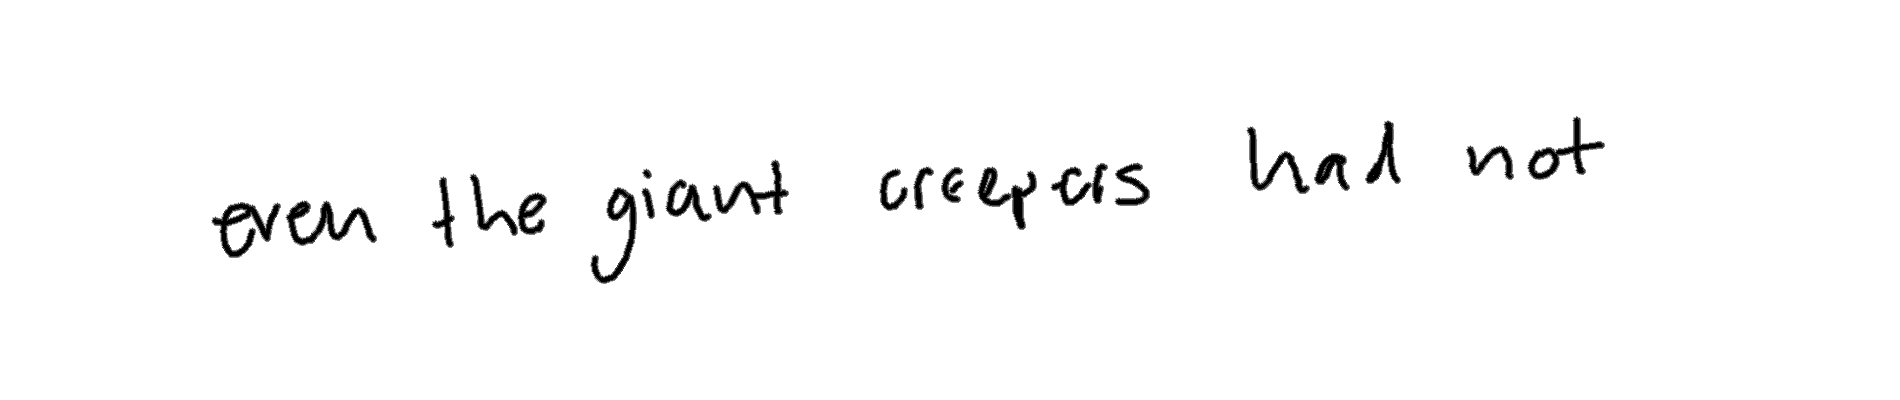 even the giant creepers had not